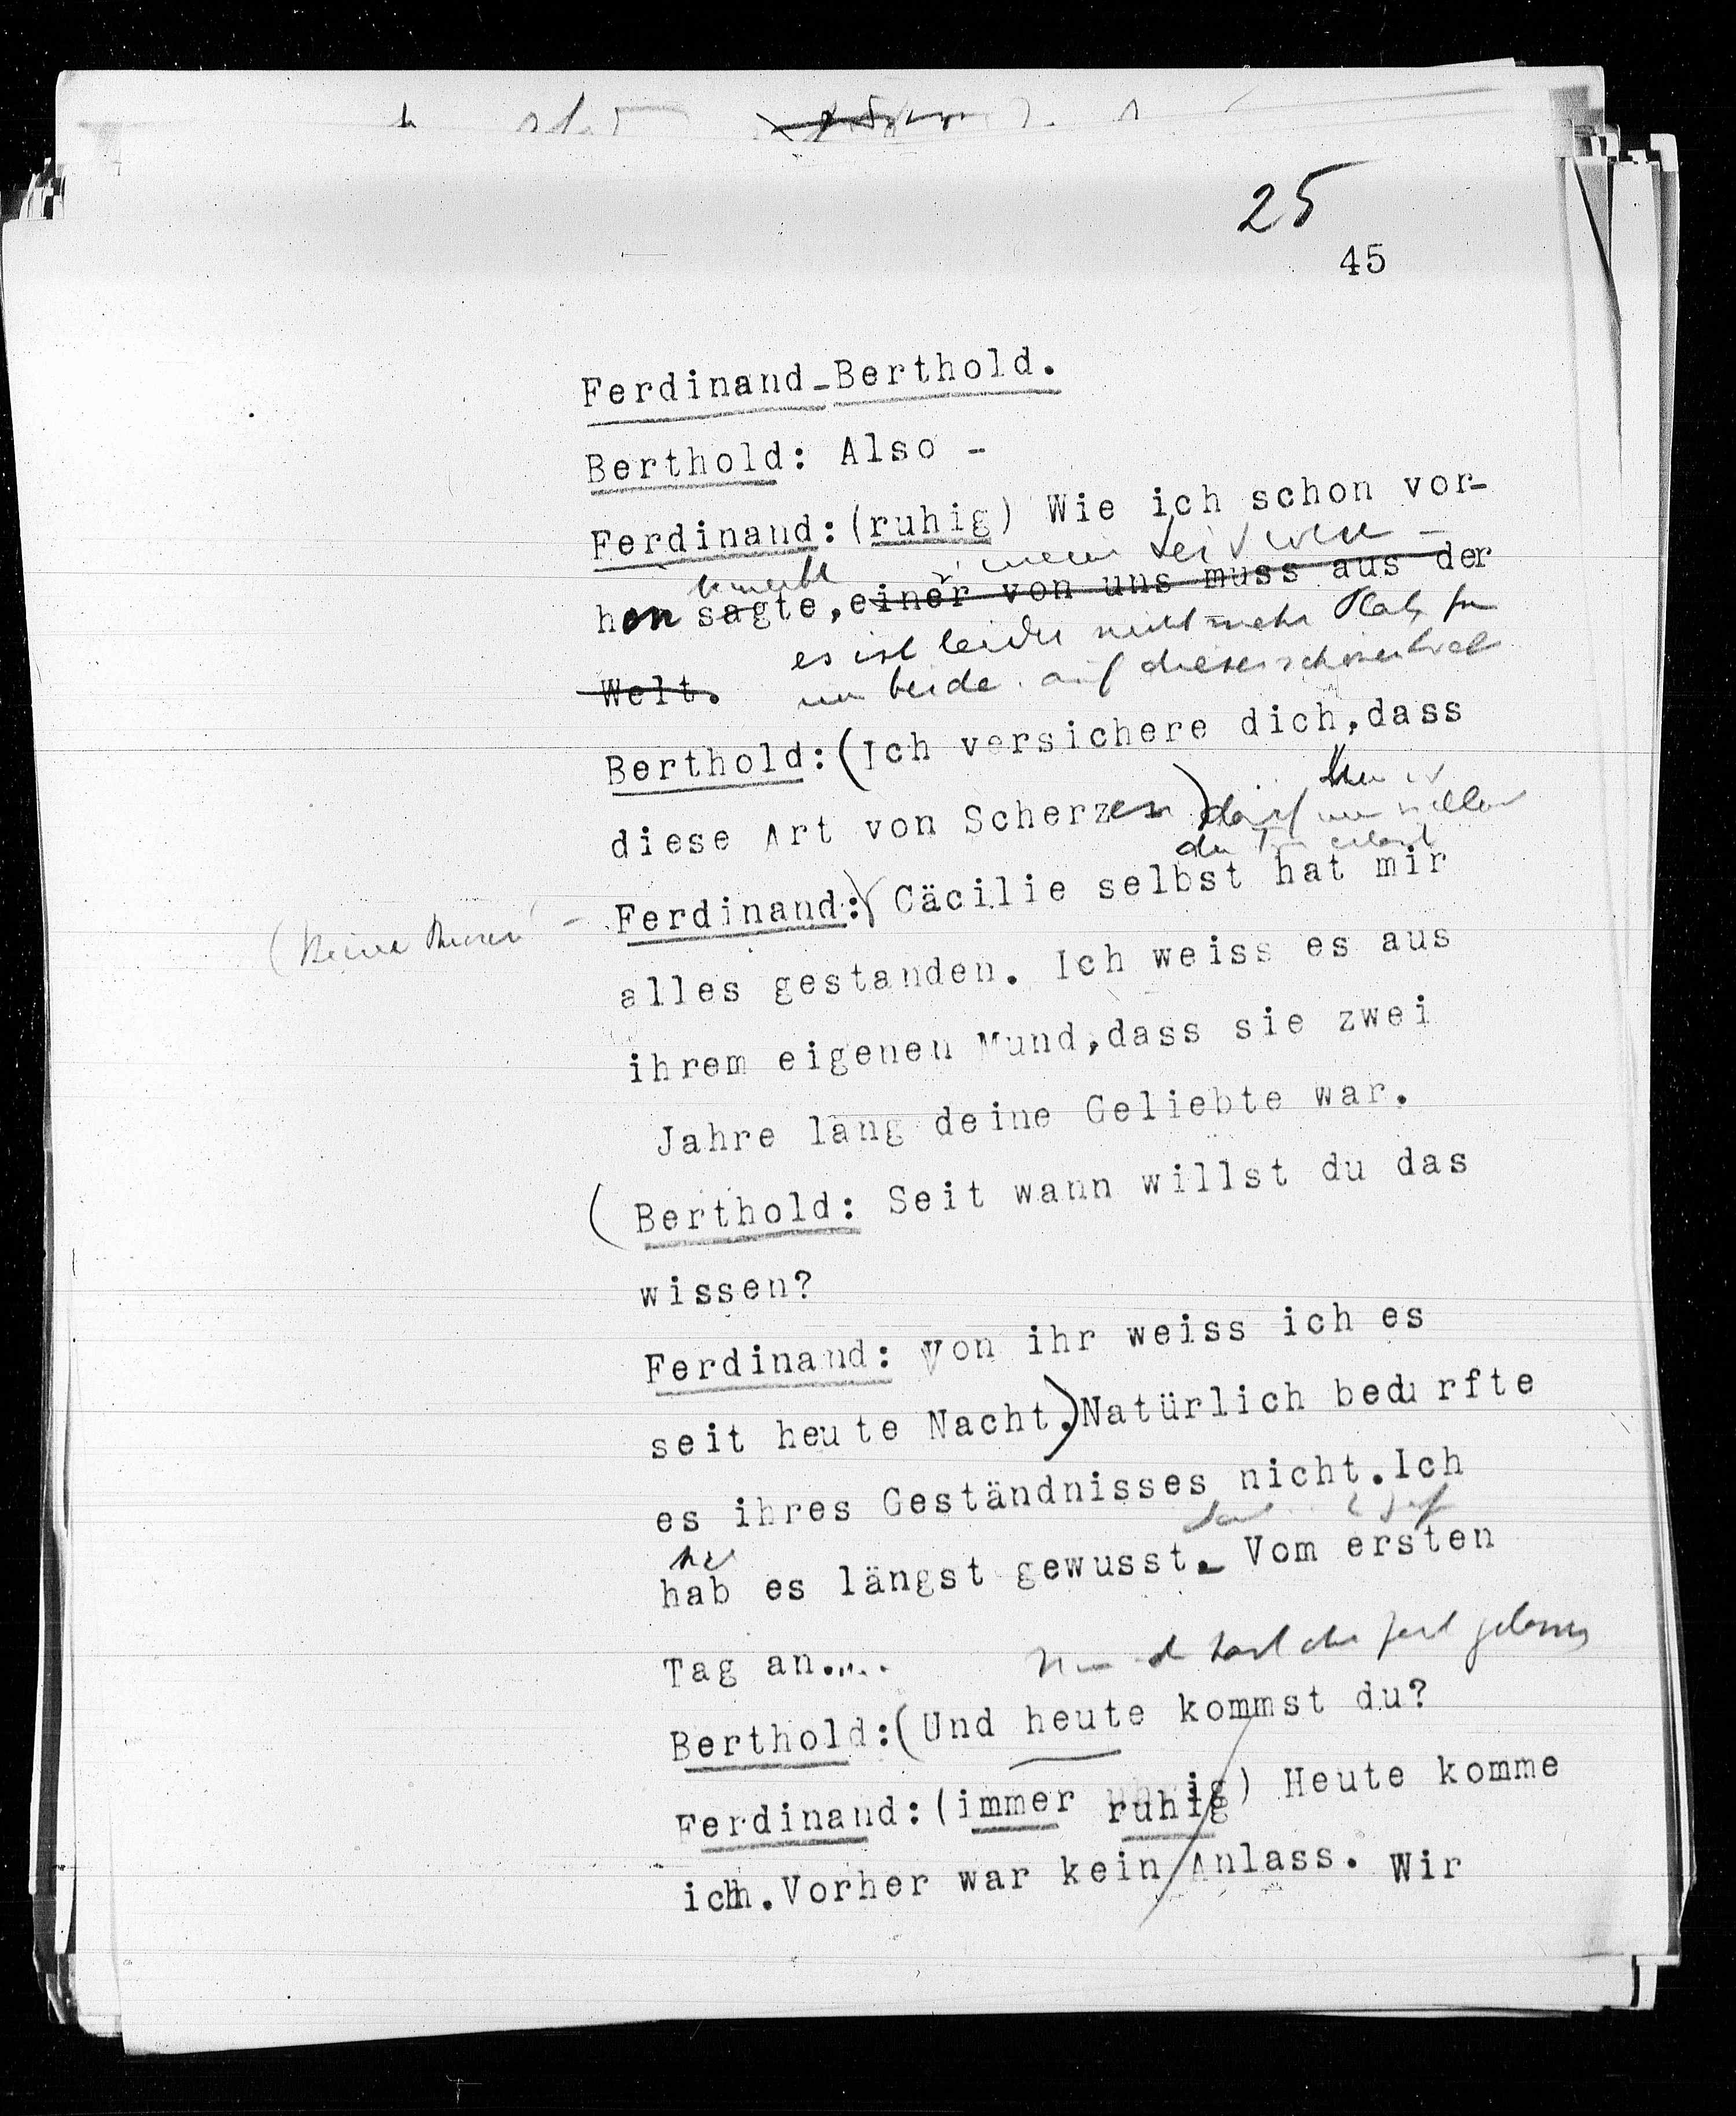 25
45
Ferdinand-Berthold.
Berthold: Also -
Ferdinand:(ruhig) Wie ich schon vor-
bemerkte
hen sagte,einer von uns muss aus der
es ist leider nicht mehr Platz für
Welt.
uns beide auf dieser schönen Welt
Berthold:(Ich versichere dich,dass
diese Art von Scherzen) darf
Ferdinand: Cäcilie selbst hat mir
(Keine
alles gestanden. Ich weiss es aus
ihrem eigenen Mund,dass sie zwei
Jahre lang deine Geliebte war.
(Berthold: Seit wann willst du das
wissen?
Ferdinand: Von ihr weiss ich es
seit heute Nacht.)Natürlich bedurfte
es ihres Geständnisses nicht.Ich
hab es längst gewusst. Vom ersten
Tag an.....
Berthold:(Und heute kommst du?
Ferdinand:(immer ruhig) Heute komme
ich.Vorher war kein Anlass. Wir